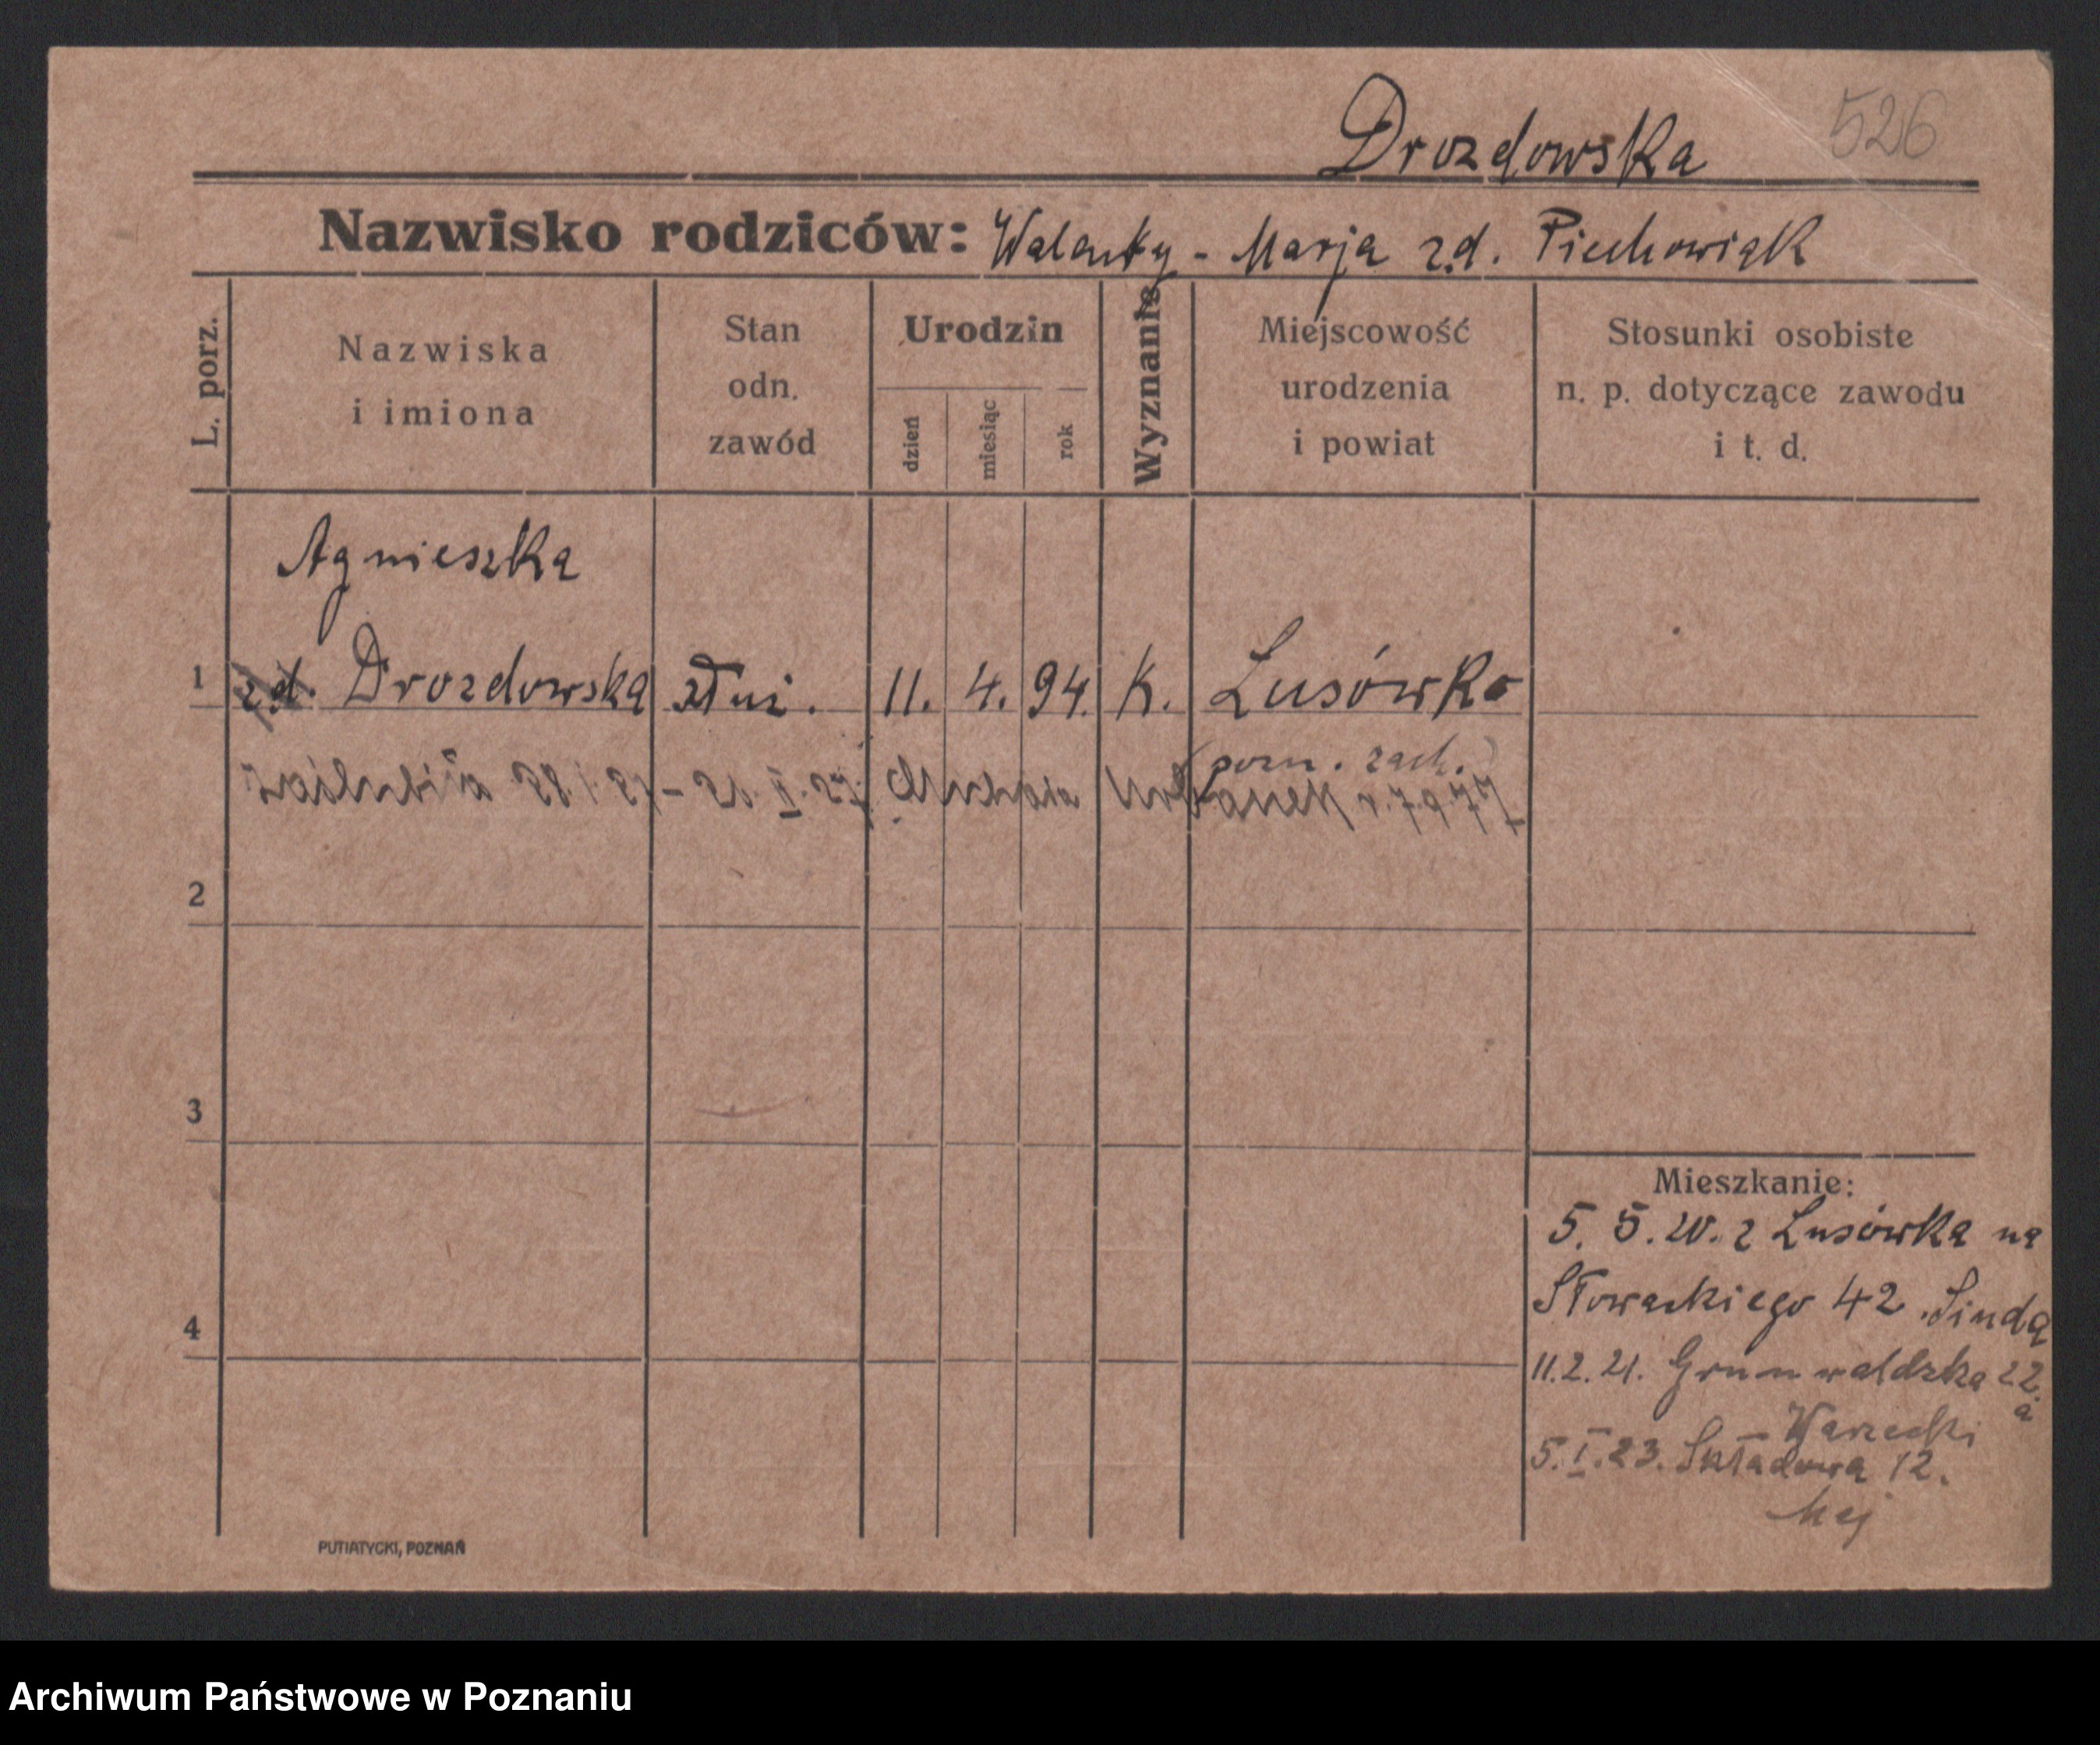 Drozdowska 526
Nazwisko rodziców: Walenty - Marja z.d. Piechowiak
L. porz.
Nazwiska
i imiona
Stan
odn.
zawód
Urodzin
dzień
miesiąc
rok
Wyznanie
Miejscowość
urodzenia
i powiat
Stosunki osobiste
n. p. dotyczące zawodu
i t. d.
Agnieszka
1 z.d. Drozdowska służ. 11. 4. 94. K. Lusówko
(pozn. zach.)
2
3
4
Mieszkanie:
5. 5. 20. z Lusówka na
Słowackiego 42. Linda
11.2.21. Grunwaldzka 22.
a
Warzecki
5.I.23. Składowa 12.
Mej
PUTIATYCKI, POZNAŃ
Archiwum Państwowe w Poznaniu